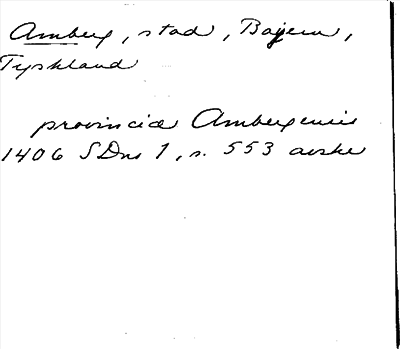 Amberg, stad, Bajern,
Tyskland
provincia Ambergensis
1406 SDns 1, s. 553 avskr